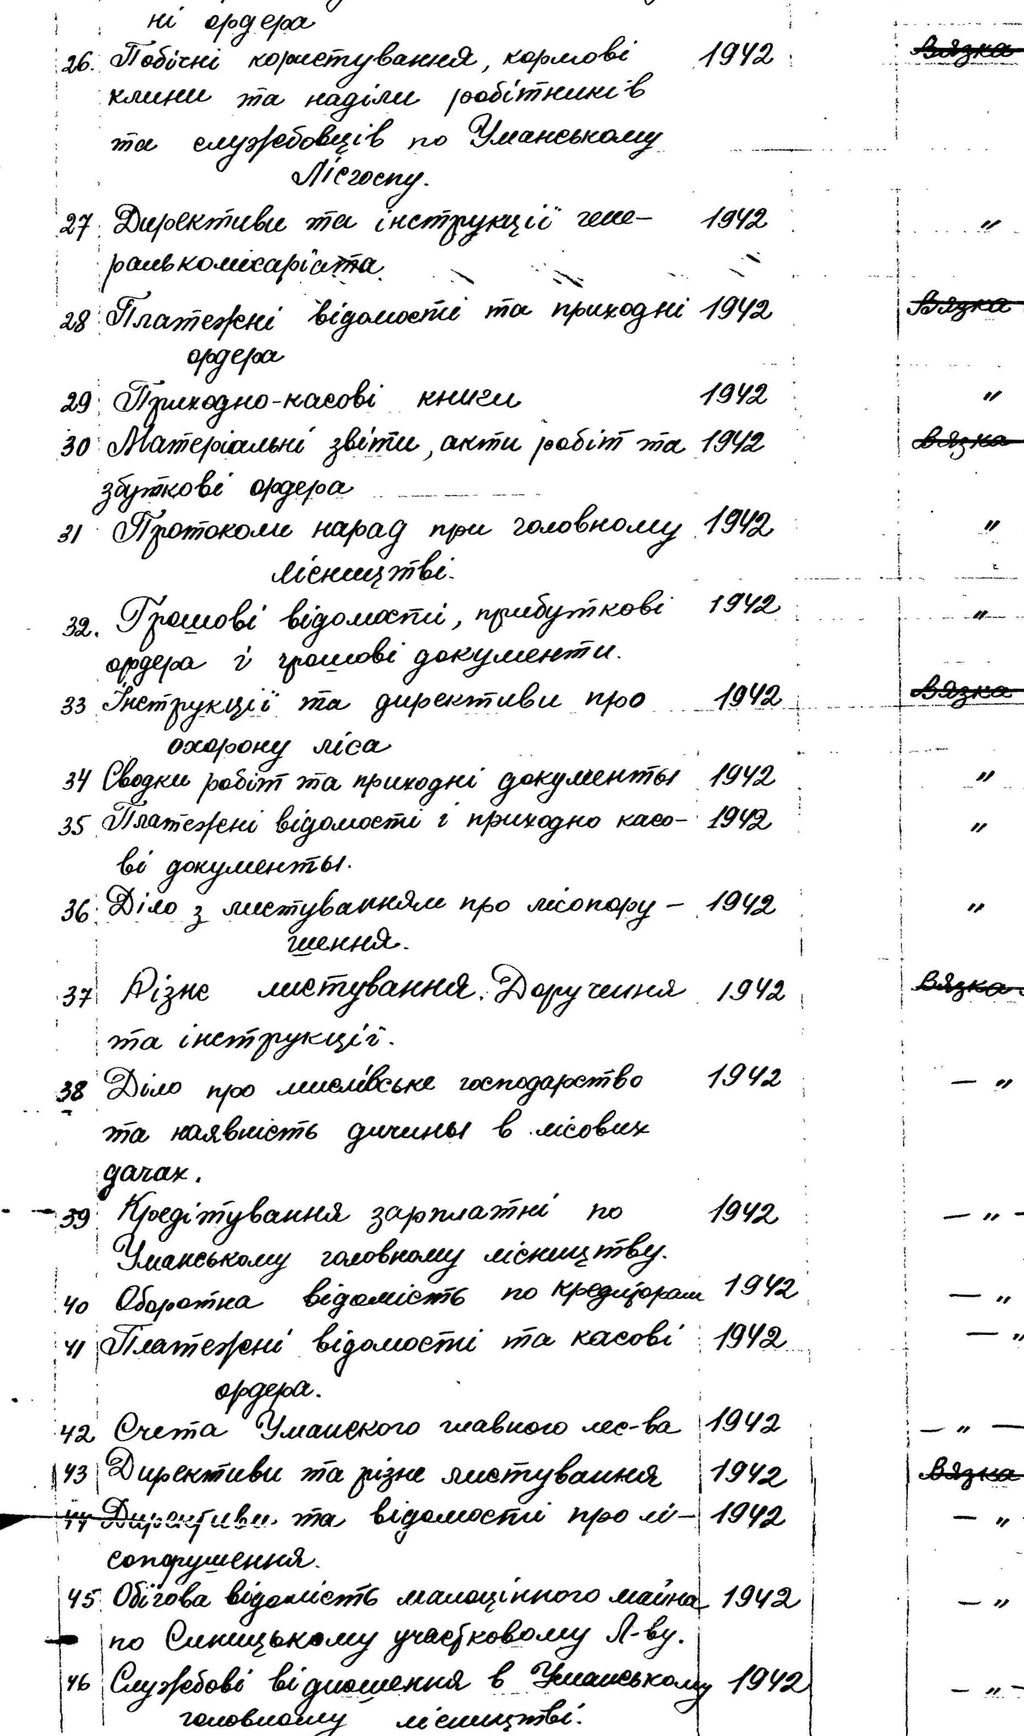 ні ордера
26. Побічні користування, кормові 1942 Вязка
клини та наділи робітників
та службовців по Уманському
Лісгоспу.
27 Директиви та інструкції гене- 1942 "
ралькомісаріата
28 Платежні відомості та приходні 1942 Вязка
ордера
29 Приходно-касові книги 1942 "
30 Матеріальні звіти, акти робіт та 1942 Вязка
збуткові ордера
31 Протоколи нарад при головному 1942 "
лісництві.
32. Грошові відомости, прибуткові 1942 "
ордера і грошові документи.
33 Інструкції та директиви про 1942 Вязка
охорону ліса
34 Сводки робіт та приходні документы 1942 "
35 Платежні відомості і приходно касо- 1942 "
ві документы.
36 Діло з листуванням про лісопору- 1942 "
шення.
37 Різне листування. Доручення 1942 Вязка
та інструкції.
38 Діло про мислівське господарство 1942 — "
та наявність дичины в лісових
дачах.
39 Кредітування зарплатні по 1942 — " —
Уманському головному лісництву.
40 Оборотна відомість по кредиторам 1942 — "
41 Платежні відомості та касові 1942 — "
ордера.
42 Счета Уманского главного лес-ва 1942 — " —
43 Директиви та різне листування 1942 Вязка
44 Директиви та відомости про лі- 1942 — "
сопорушення.
45 Обігова відомість малоцінного майна 1942 — "
по Синицькому участковому Л-ву.
46 Службові відношення в Уманському 1942 — " —
головному лісництві.